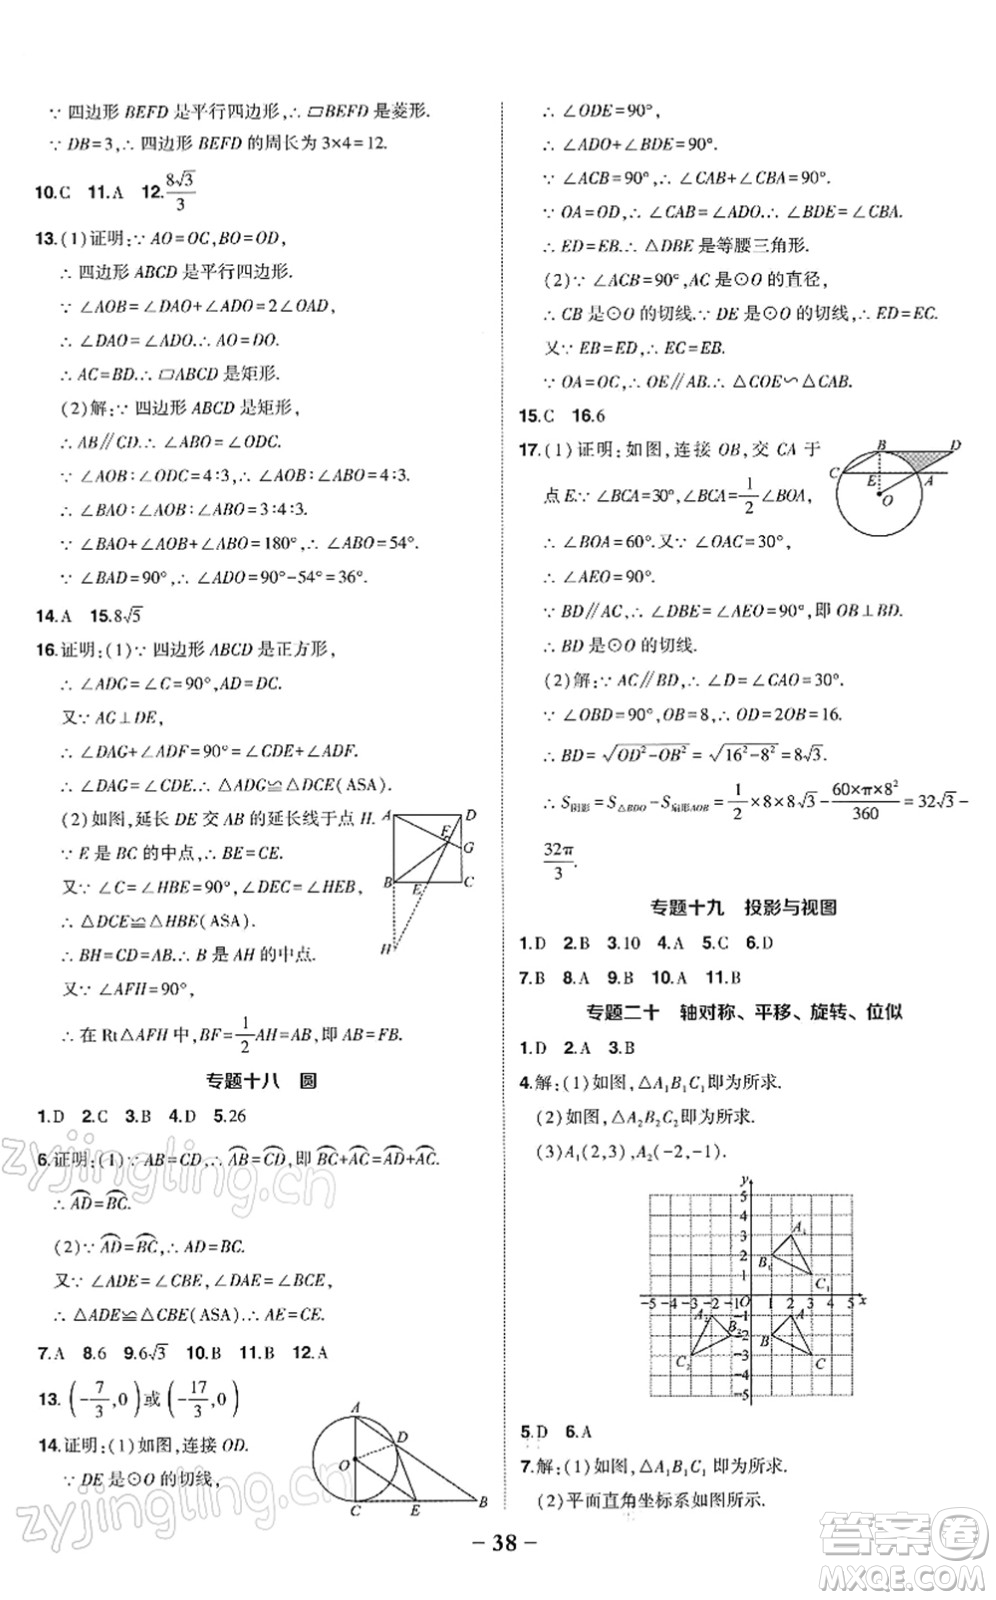 ∵ 四边形 BEFD 是平行四边形,∴ ▱BEFD 是菱形.
∵ DB=3,∴ 四边形 BEFD 的周长为 3×4=12.
10.C 11.A 12.8√3/3
13.(1)证明:∵ AO=OC,BO=OD,
∴ 四边形 ABCD 是平行四边形.
∵ ∠AOB=∠DAO+∠ADO=2∠OAD,
∴ ∠DAO=∠ADO.∴ AO=DO.
∴ AC=BD.∴ ▱ABCD 是矩形.
(2)解:∵ 四边形 ABCD 是矩形,
∴ AB∥CD.∴ ∠ABO=∠ODC.
∵ ∠AOB∶∠ODC=4∶3,∴ ∠AOB∶∠ABO=4∶3.
∴ ∠BAO∶∠AOB∶∠ABO=3∶4∶3.
∵ ∠BAO+∠AOB+∠ABO=180°,∴ ∠ABO=54°.
∵ ∠BAD=90°,∴ ∠ADO=90°-54°=36°.
14.A 15.8√5
16.证明:(1)∵ 四边形 ABCD 是正方形,
∴ ∠ADG=∠C=90°,AD=DC.
又∵ AG⊥DE,
∴ ∠DAG+∠ADF=90°=∠CDE+∠ADF.
∴ ∠DAG=∠CDE.∴ △ADG≌△DCE(ASA).
(2)如图,延长 DE 交 AB 的延长线于点 H.
∵ E 是 BC 的中点,∴ BE=CE.
又∵ ∠C=∠HBE=90°,∠DEC=∠HEB,
∴ △DCE≌△HBE(ASA).
∴ BH=CD=AB.∴ B 是 AH 的中点.
又∵ ∠AFH=90°,
∴ 在 Rt△AFH 中,BF=1/2AH=AB.
A D
F
G
B E C
H
专题十八 圆
1.D 2.C 3.B 4.D 5.26
6.证明:(1)∵ AB=CD,∴ ⌒AB=⌒CD,即 ⌒BC+⌒AC=⌒AD+⌒AC.
∴ ⌒AD=⌒BC.
(2)∵ ⌒AD=⌒BC,∴ AD=BC.
又∵ ∠ADE=∠CBE,∠DAE=∠BCE,
∴ △ADE≌△CBE(ASA).∴ AE=CE.
7.A 8.6 9.6√3 10.B 11.B 12.A
13.(-7/3,0)或(-17/3,0)
14.证明:(1)如图,连接 OD.
∵ DE 是⊙O 的切线,
A
D
O
C E B
∴ ∠ODE=90°,
∴ ∠ADO+∠BDE=90°.
∵ ∠ACB=90°,∴ ∠CAB+∠CBA=90°.
∵ OA=OD,∴ ∠CAB=∠ADO.∴ ∠BDE=∠CBA.
∴ ED=EB.∴ △DBE 是等腰三角形.
(2)∵ ∠ACB=90°,AC 是⊙O 的直径,
∴ CB 是⊙O 的切线.∵ DE 是⊙O 的切线,∴ ED=EC.
又∵ EB=ED,∴ EC=EB.
∵ OA=OC,∴ OE∥AB.∴ △COE∽△CAB.
15.C 16.6
17.(1)证明:如图,连接 OB,交 CA 于
点 E.∵ ∠BCA=30°,∠BCA=1/2∠BOA,
∴ ∠BOA=60°.又∵ ∠OAC=30°,
∴ ∠AEO=90°.
∵ BD∥AC,∴ ∠DBE=∠AEO=90°,即 OB⊥BD.
∴ BD 是⊙O 的切线.
(2)解:∵ AC∥BD,∴ ∠D=∠CAO=30°.
∵ ∠OBD=90°,OB=8,∴ OD=2OB=16.
∴ BD=√(OD²-OB²)=√(16²-8²)=8√3.
∴ S阴影=S△BDO-S扇形AOB=1/2×8×8√3-(60×π×8²)/360=32√3-
32π/3.
B D
C E A
O
专题十九 投影与视图
1.D 2.B 3.10 4.A 5.C 6.D
7.B 8.A 9.B 10.A 11.B
专题二十 轴对称、平移、旋转、位似
1.D 2.A 3.B
4.解:(1)如图,△A₁B₁C₁即为所求.
(2)如图,△A₂B₂C₂即为所求.
(3)A₁(2,3),A₂(-2,-1).
y
5
4
3 A₁
2 B₁
1 C₁
-5-4-3-2-1O 1 2 3 4 5 x
-1 A₂ A
-2 B₂ B
-3 C₂ C
-4
-5
5.D 6.A
7.解:(1)如图,△A₁B₁C₁即为所求.
(2)平面直角坐标系如图所示.
- 38 -
zyjingling.cn
zyjingling.cn
答案圈
MXQE.COM